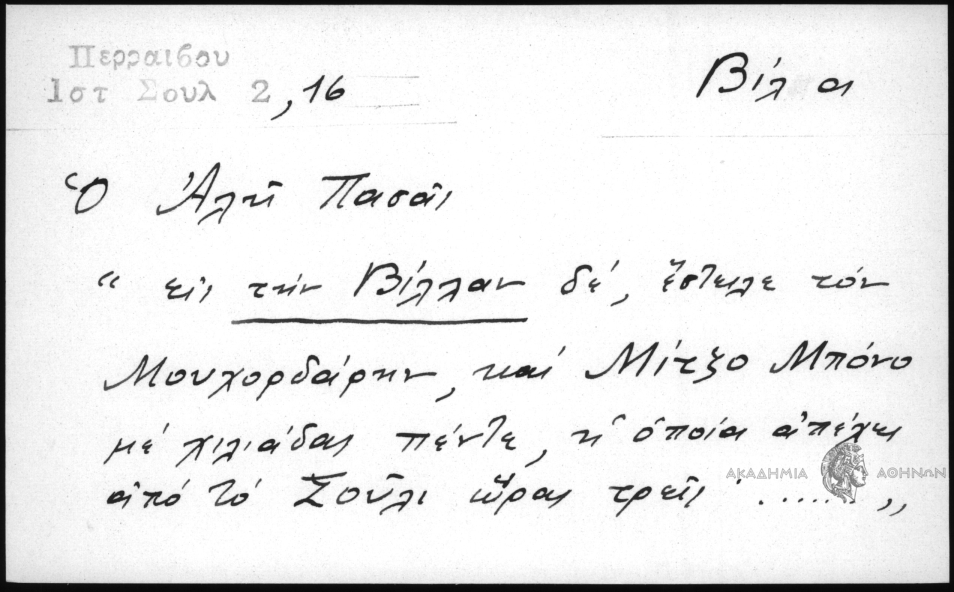 Περραιβου
Ιστ Σουλ 2, 16
Βίλα
Ὁ Ἀλῆ Πασᾶς
“ εἰς τήν Βίλλαν δέ, ἔστειλε τόν
Μουχορδάρην, καί Μίτζο Μπόνο
μέ χιλιάδας πέντε, ἡ ὁποία ἀπέχει
ἀπό τό Σοῦλι ὥρας τρεῖς· ....... „
ΑΚΑΔΗΜΙΑ ΑΘΗΝΩΝ